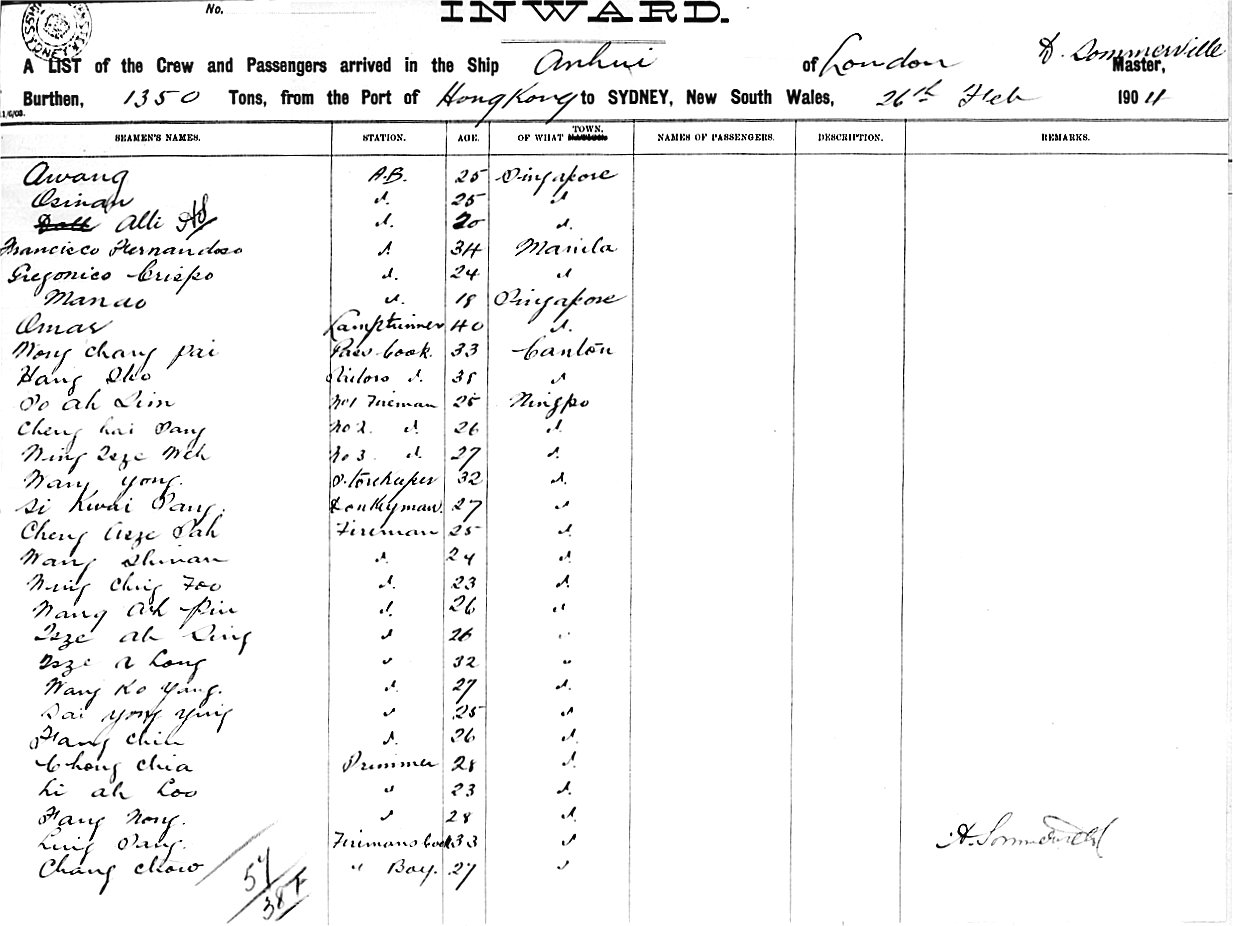 No.
INWARD.
A LIST of the Crew and Passengers arrived in the Ship Anhui of London D. Sommerville Master,
Burthen, 1350 Tons, from the Port of Hong Kong to SYDNEY, New South Wales, 26th Feb 1904
SEAMEN'S NAMES. STATION. AGE. OF WHAT TOWN. NAMES OF PASSENGERS. DESCRIPTION. REMARKS.
Awang A.B. 25 Singapore
Osman d. 25 d
Alli d. 20 d.
Francisco Hernandoso d 34 Manila
Gregonico Crispo d. 24 d
Manao d. 18 Singapore
Omar Lamptrimmer 40 d.
Wong Chang Pai Pass Cook. 33 Canton
Hang Sho Sailors d. 38 d
So ah Sim No1 Fireman 25 Ningpo
Cheng hai Sang No 2. d 26 d.
Ning Tsze Weh No 3. d. 27 d.
Wang yong. Storekeeper 32 d.
Si Kwai Sang. Donkeyman. 27 d
Cheng Asze Pah Fireman 25 d.
Wang Shinan d. 24 d.
Ning Ching Foo d. 23 d.
Wang Ah Pin d. 26 d
Tsze ah Ling d 26 "
Tsze a Long " 32 "
Wang Ko Yang. d. 27 d.
Sai yong ying " 25 d
Fang Chin d. 26 d.
Chong Chia Trimmer 28 d.
Li ah Loo " 23 d.
Fang Nong. " 28 d.
Ling Sang. Firemans Cook 33 d
Chang Chow " Boy. 27 "